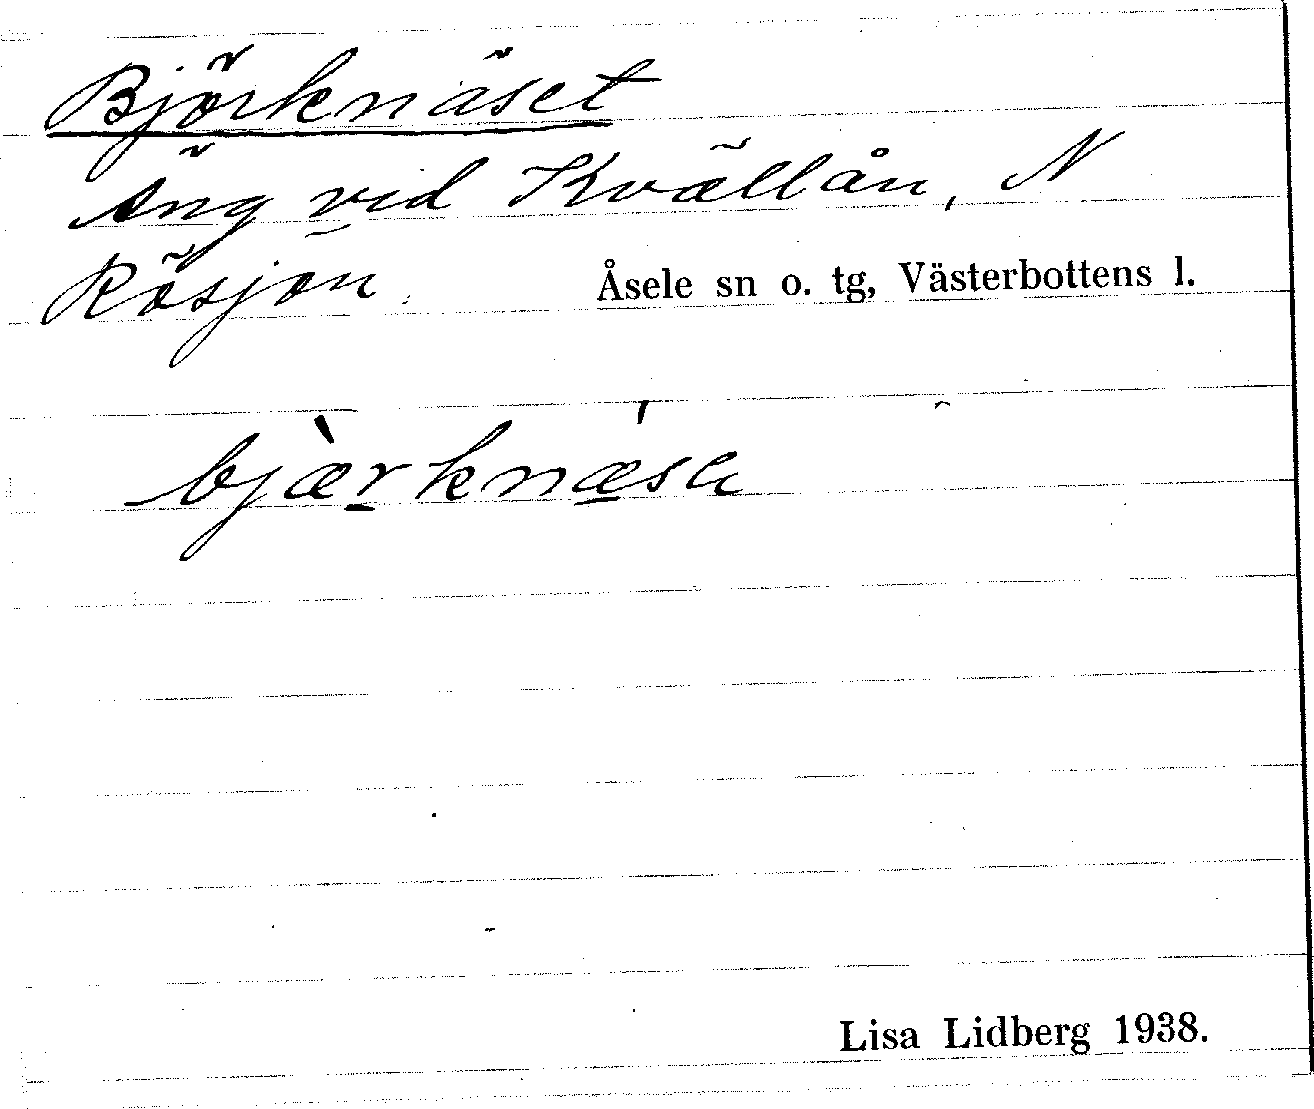 Björknäset
Äng vid Kvällån, N
Rösjön. Åsele sn o. tg, Västerbottens l.
bjæ̀rknǽsɐ
Lisa Lidberg 1938.